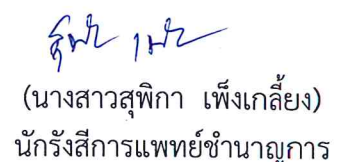 (นางสาวสุพิกา เพ็งเกลี้ยง)
นักรังสีการแพทย์ชำนาญการ